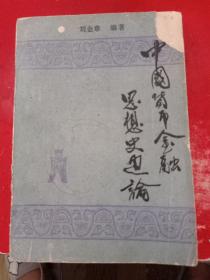 刘金章 编著
中國貨币金融
思想史通論